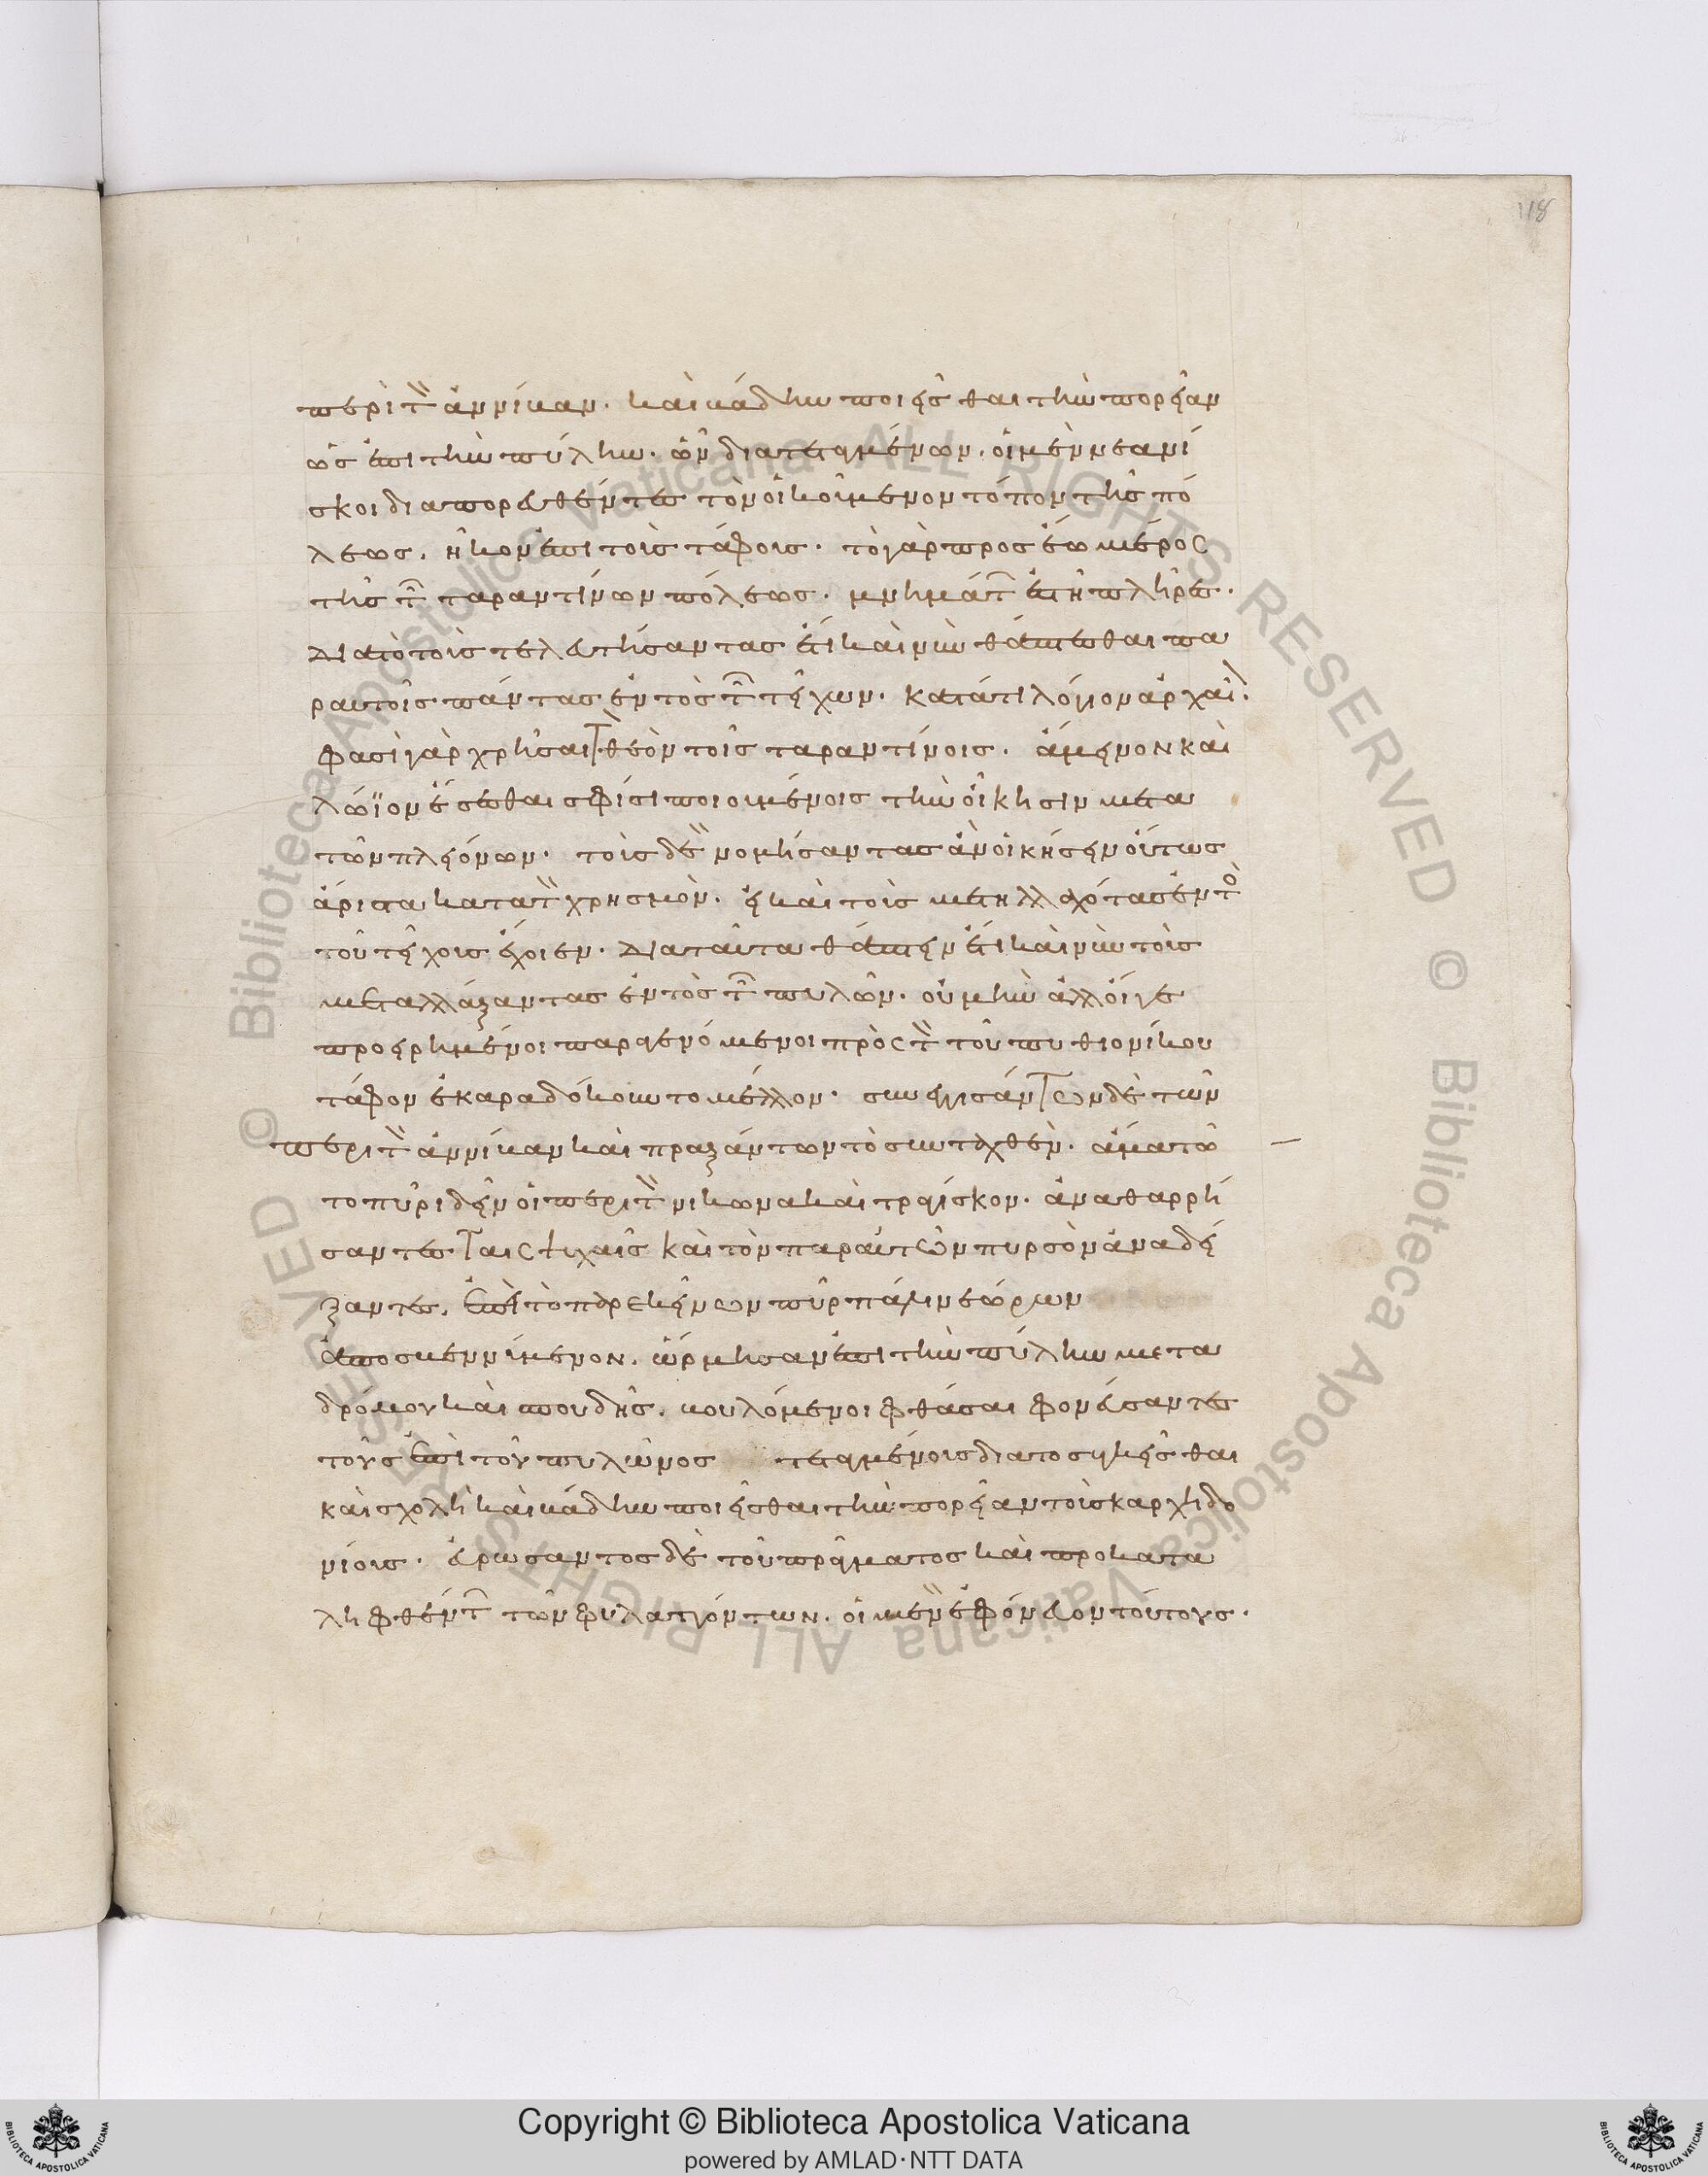 118
περὶ τὸν ἀννίβαν· καὶ βάδην ποιεῖσθαι τὴν πορείαν
ὡς ἐπὶ τὴν πύλην· ὧν διατεταγμένων· οἱ μὲν νεανί
σκοι διαπορευθέντες τὸν οἰκούμενον τόπον τῆς πό
λεως· ἧκον ἐπὶ τοὺς τάφους· τὸ γὰρ πρὸς ἕω μέρος
τῆς τῶν ταραντίνων πόλεως· μνημάτων ἐστὶ πλῆρες·
διὰ τὸ τοὺς τελευτήσαντας ἔτι καὶ νῦν θάπτεσθαι πα
ρ αυτοῖς πάντας ἐντὸς τῶν τειχῶν· κατά τι λόγιον ἀρχαῖον·
φασὶ γὰρ χρῆσαι τὸν θεὸν τοῖς ταραντίνοις· ἄμεινον καὶ
λώϊον ἔσεσθαι σφίσι ποιουμένοις τὴν οἴκησιν μετα
τῶν πλειόνων· τοὺς δὲ νομίσαντας ἂν οἰκήσειν οὕτως
ἄριστα κατα τὸν χρησμὸν· εἰ καὶ τοὺς μετηλλαχότας ἐντὸς
τοῦ τείχους ἔχοιεν· διὰ ταῦτα θάπτειν ἔτι καὶ νῦν τοὺς
μεταλλάξαντας ἐντὸς τῶν πυλῶν· οὐ μὴν ἀλλ οἵ γε
προειρημένοι παραγενόμενοι πρὸς τὸν τοῦ πυθιονίκου
τάφον ἐκαραδόκουν το μέλλον· συνεγγισάντων δὲ τῶν
περι τὸν ἀννίβαν καὶ πραξάντων τὸ συνταχθὲν· ἅμα τῶ
το πῦρ ιδεῖν οἱ περι τὸν νίκωνα καὶ τραγίσκον· ἀναθαρρή
σαντες ταις ψυχαῖς καὶ τὸν παρ αὐτῶν πυρσὸν ἀναδεί
ξαντες· ἐπεὶ τὸ παρ ἐκείνων πῦρ πάλιν εώρων
ἀποσβεννύμενον· ὥρμησαν ἐπὶ τὴν πύλην μετα
δρόμου καὶ σπουδῆς· βουλόμενοι φθάσαι φονεύσαντες
τοὺς ἐπὶ τοῦ πυλῶνος τεταγμένους δια το συγκεῖσθαι
καὶ σχολῆ καὶ βάδην ποιεῖσθαι τὴν πορείαν τοὺς καρχηδο
νίους· εὐρωσαντος δὲ τοῦ πράγματος καὶ προκατα
ληφθέντων τῶν φυλαττόντων· οἱ μὲν ἐφόνευον τούτους·
Copyright © Biblioteca Apostolica Vaticana
powered by AMLAD·NTT DATA